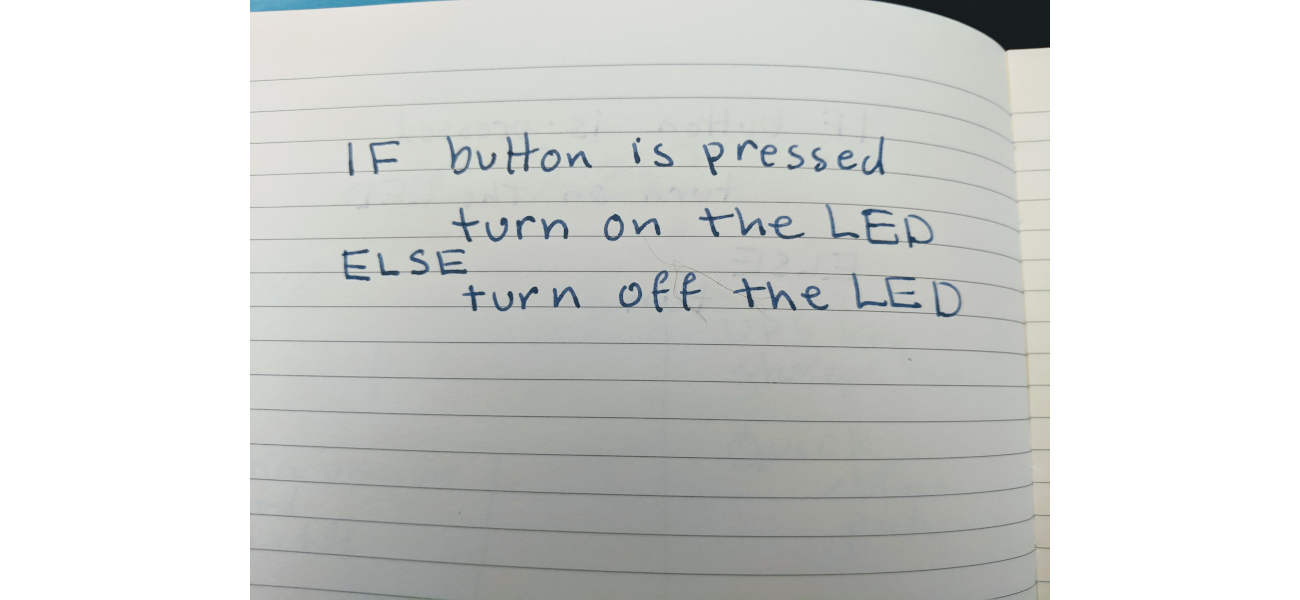 IF button is pressed
turn on the LED
ELSE
turn off the LED